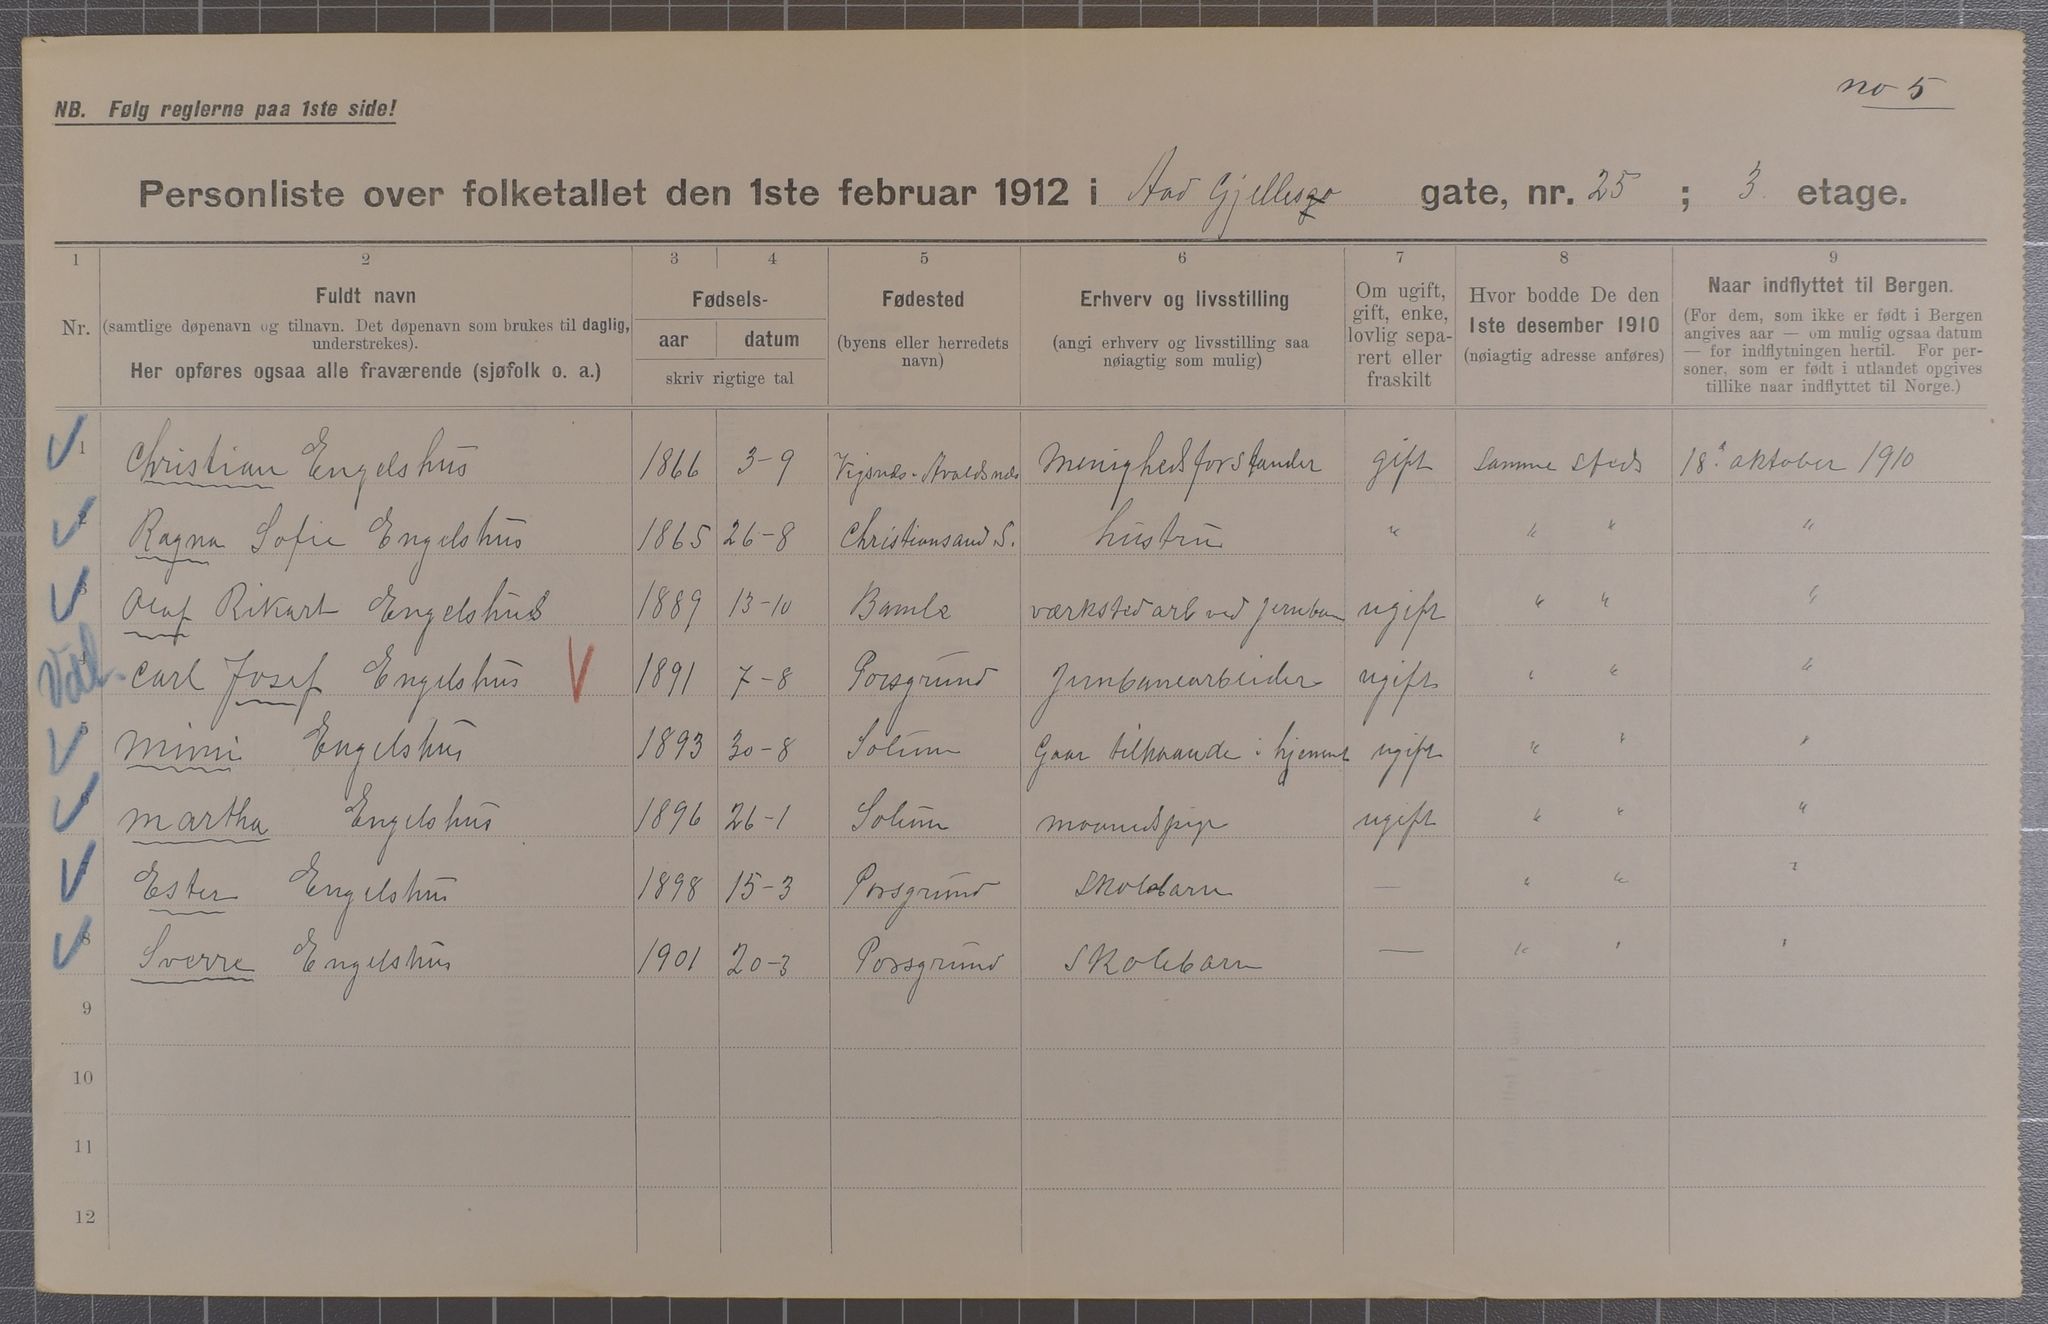 no 5
NB. Følg reglerne paa 1ste side!
Personliste over folketallet den 1ste februar 1912 i Aad Gjelles gate, nr. 25 ; 3 etage.
1 2 3 4 5 6 7 8 9
Nr.
Fuldt navn
(samtlige døpenavn og tilnavn. Det døpenavn som brukes til daglig, understrekes).
Her opføres ogsaa alle fraværende (sjøfolk o. a.)
Fødsels-
aar datum
skriv rigtige tal
Fødested
(byens eller herredets
navn)
Erhverv og livsstilling
(angi erhverv og livsstilling saa
nøiagtig som mulig)
Om ugift,
gift, enke,
lovlig sepa-
rert eller
fraskilt
Hvor bodde De den
1ste desember 1910
(nøiagtig adresse anføres)
Naar indflyttet til Bergen.
(For dem, som ikke er født i Bergen
angives aar — om mulig ogsaa datum
— for indflytningen hertil. For per-
soner, som er født i utlandet opgives
tillike naar indflyttet til Norge.)
1 Christian Engelshus 1866 3-9 Vigsnæs-Avaldsnæs Menighedsforstander gift samme sted 18. oktober 1910
2 Ragna Sofie Engelshus 1865 26-8 Christiansand S. hustru " " " "
3 Olaf Rikart Engelshus 1889 13-10 Bamle værkstedarb ved jernban ugift " " "
4 Carl Josef Engelshus V 1891 7-8 Porsgrund Jernbanearbeider ugift " " "
5 Mimi Engelshus 1893 30-8 Solum Gaar tilhaande i hjemmet ugift " " "
6 Martha Engelshus 1896 26-1 Solum maanedspige ugift " " "
7 Ester Engelshus 1898 15-3 Porsgrund Skolebarn — " " "
8 Sverre Engelshus 1901 20-3 Porsgrund Skolebarn — " " "
9
10
11
12